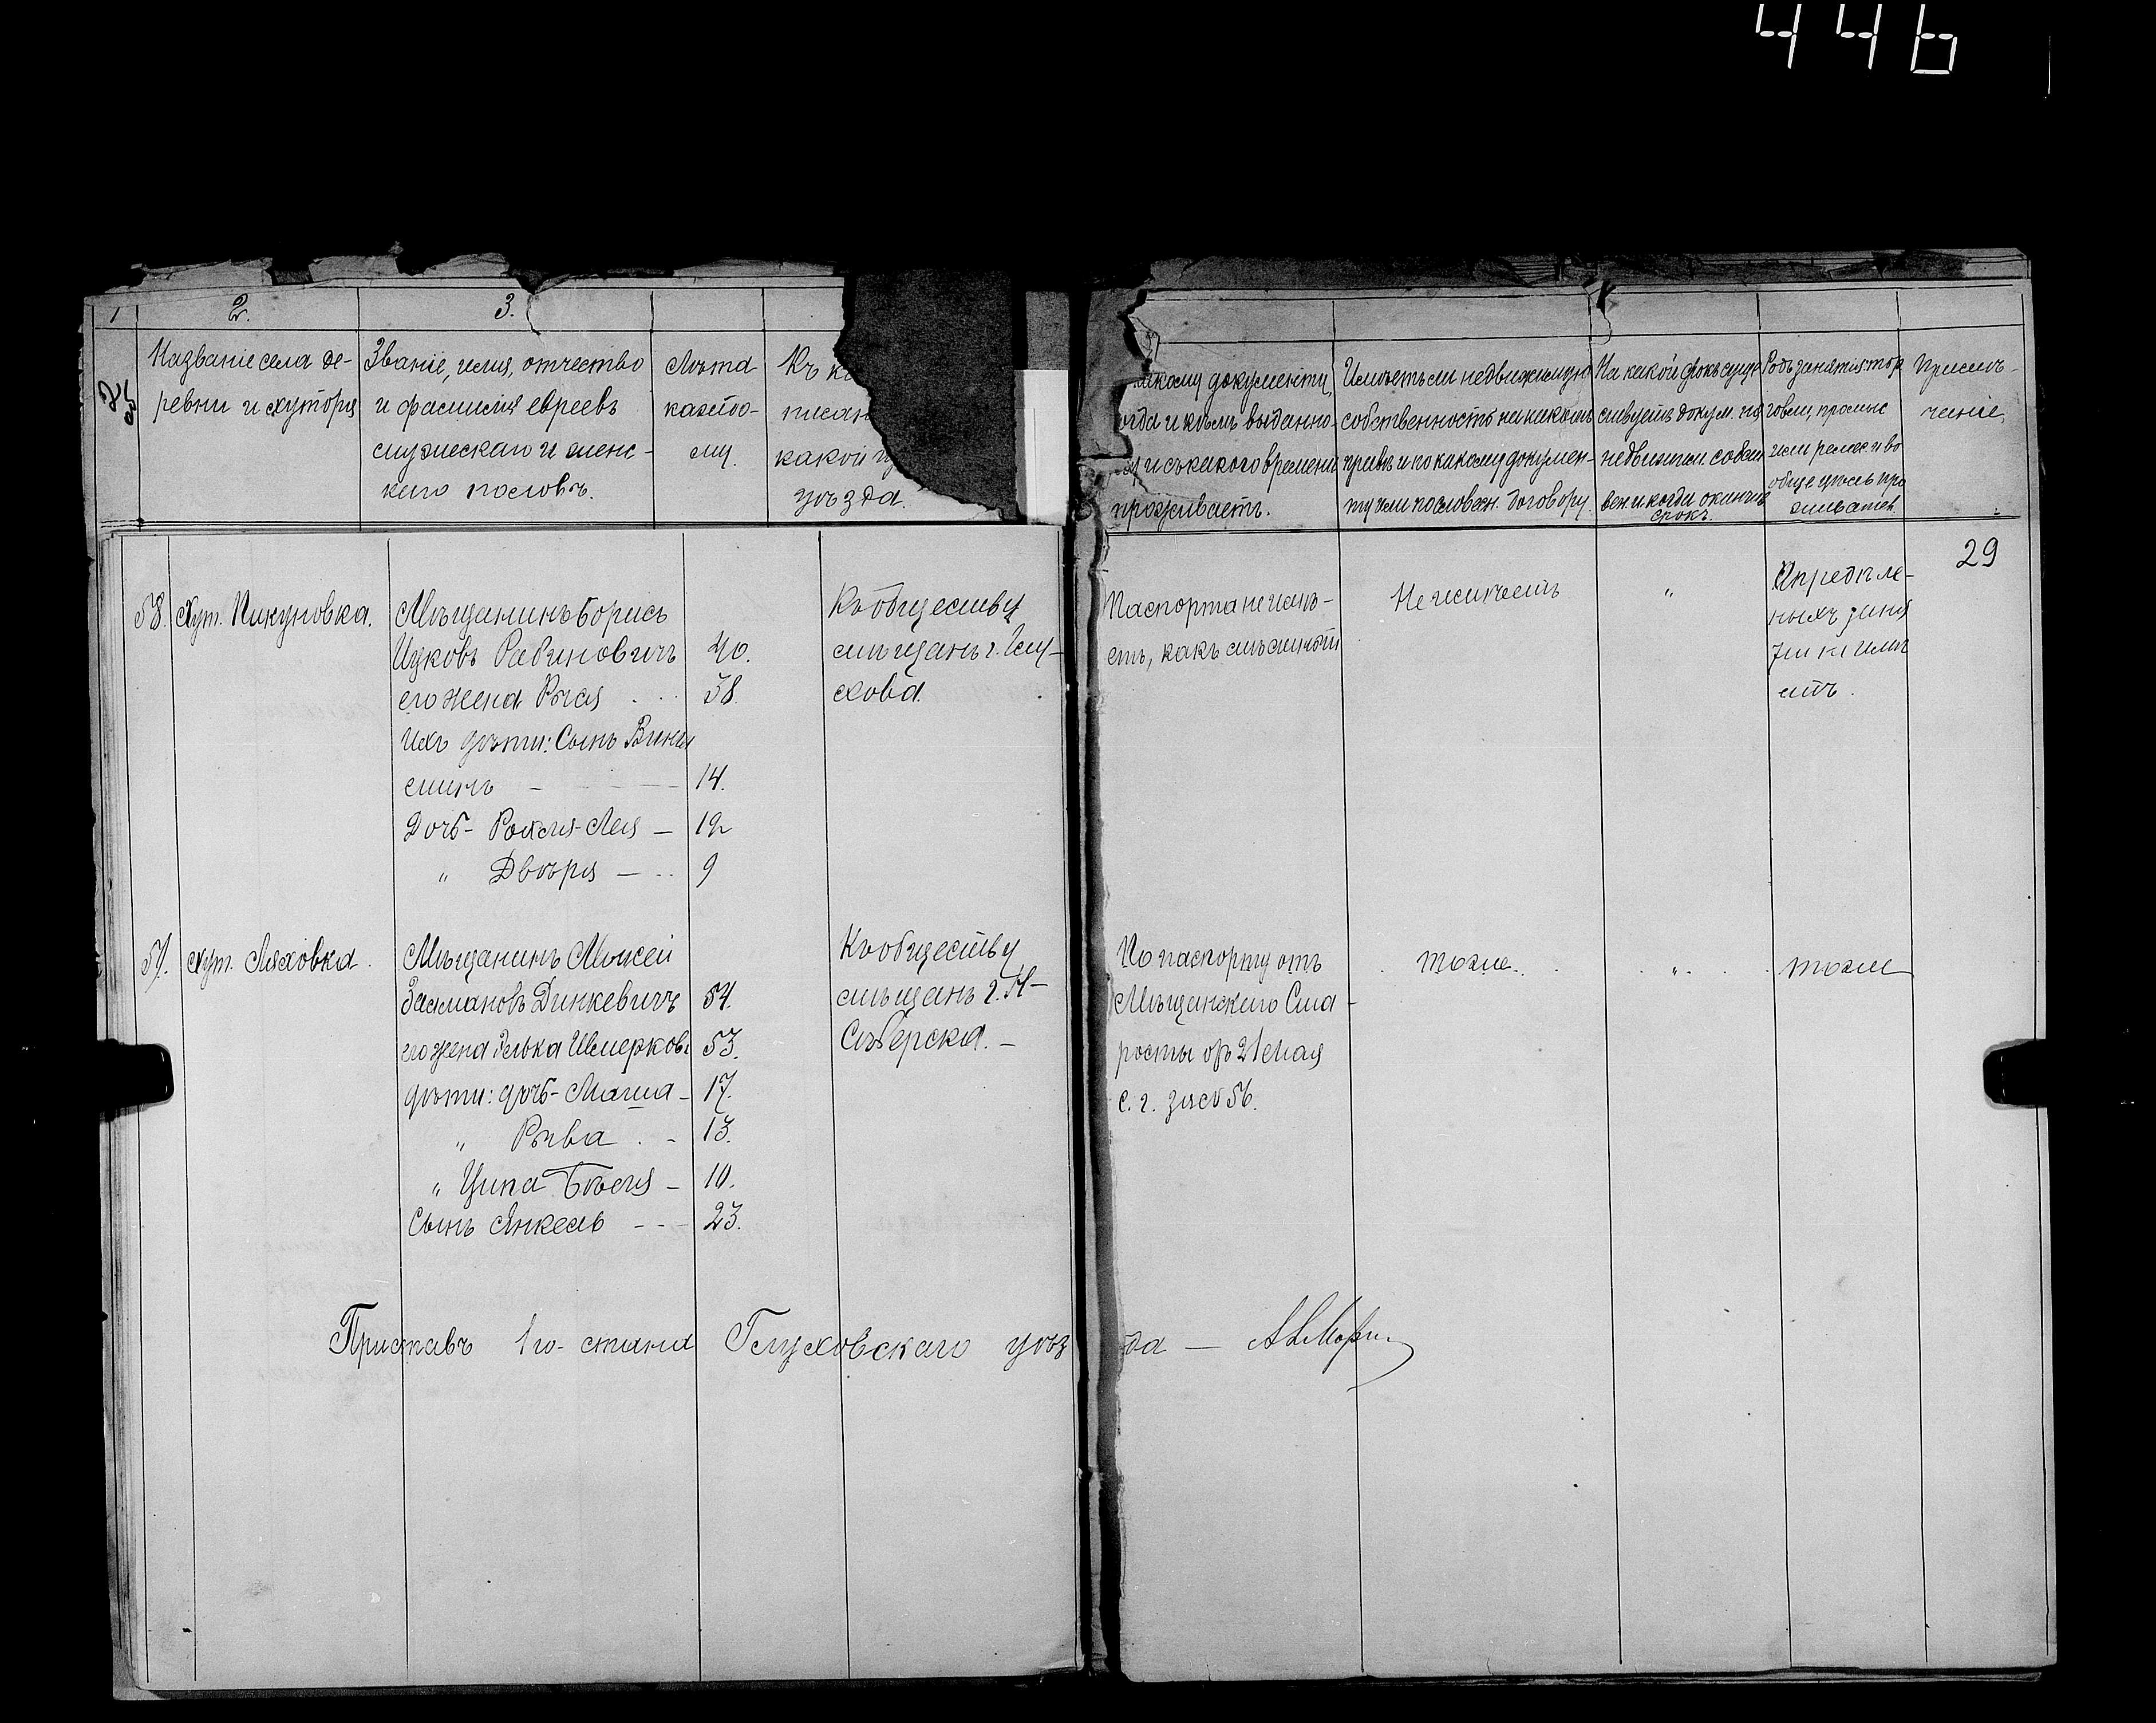 446
1
2.
3.
№
Названіе села де-
ревни и хутора
Званіе, имя, отчество
и фамилія евреевъ
мужескаго и женс-
каго половъ.
Лѣта
каждо-
му.
Къ
писан
какой
уѣзда.
какому документу,
когда и кѣмъ выданно-
му и съ какого времени
проживаетъ.
Имѣетъ ли недвижимую
собственность на какомъ
правѣ и по какому докумен-
ту или словесн. договору.
На какой срокъ суще
ствуетъ докум. на
недвижим. собств
вен. и когда оконч.
срокъ.
Родъ занятія тор
говли, промыс
или ремес. и во
обще чѣмъ про
Примѣ-
чаніе.
29
58. Хут. Пикуновка.
Мѣщанинъ Борисъ
Ицковъ Рабиновичъ 40.
его жена Рася 38.
Ихъ дѣти: Сынъ Веніа
минъ - 14.
Дочь - Рохля-Лея — 12
" Двѣря — 9
Къ обществу
мѣщанъ г. Глу-
хова.
Паспорта не имѣ-
етъ, какъ мѣстный
Не имѣетъ
"
Опредѣле-
ныхъ заня
тій не имѣ
етъ.
59. хут. Ляховка.
Мѣщанинъ Моисей
Залмановъ Динкевичъ 54.
его жена Элька Шмеркова 53.
дѣти: дочь - Маша - 17.
" Рива - 13.
" Ципа Бѣся - 10.
Сынъ Янкель - - - 23.
Къ обществу
мѣщанъ г. Н-
Сѣверска. -
По паспорту отъ
Мѣщанскаго Ста-
росты отъ 21 мая
с. г. за № 56.
тоже.
"
тоже
Приставъ 1го стана Глуховскаго уѣзда —